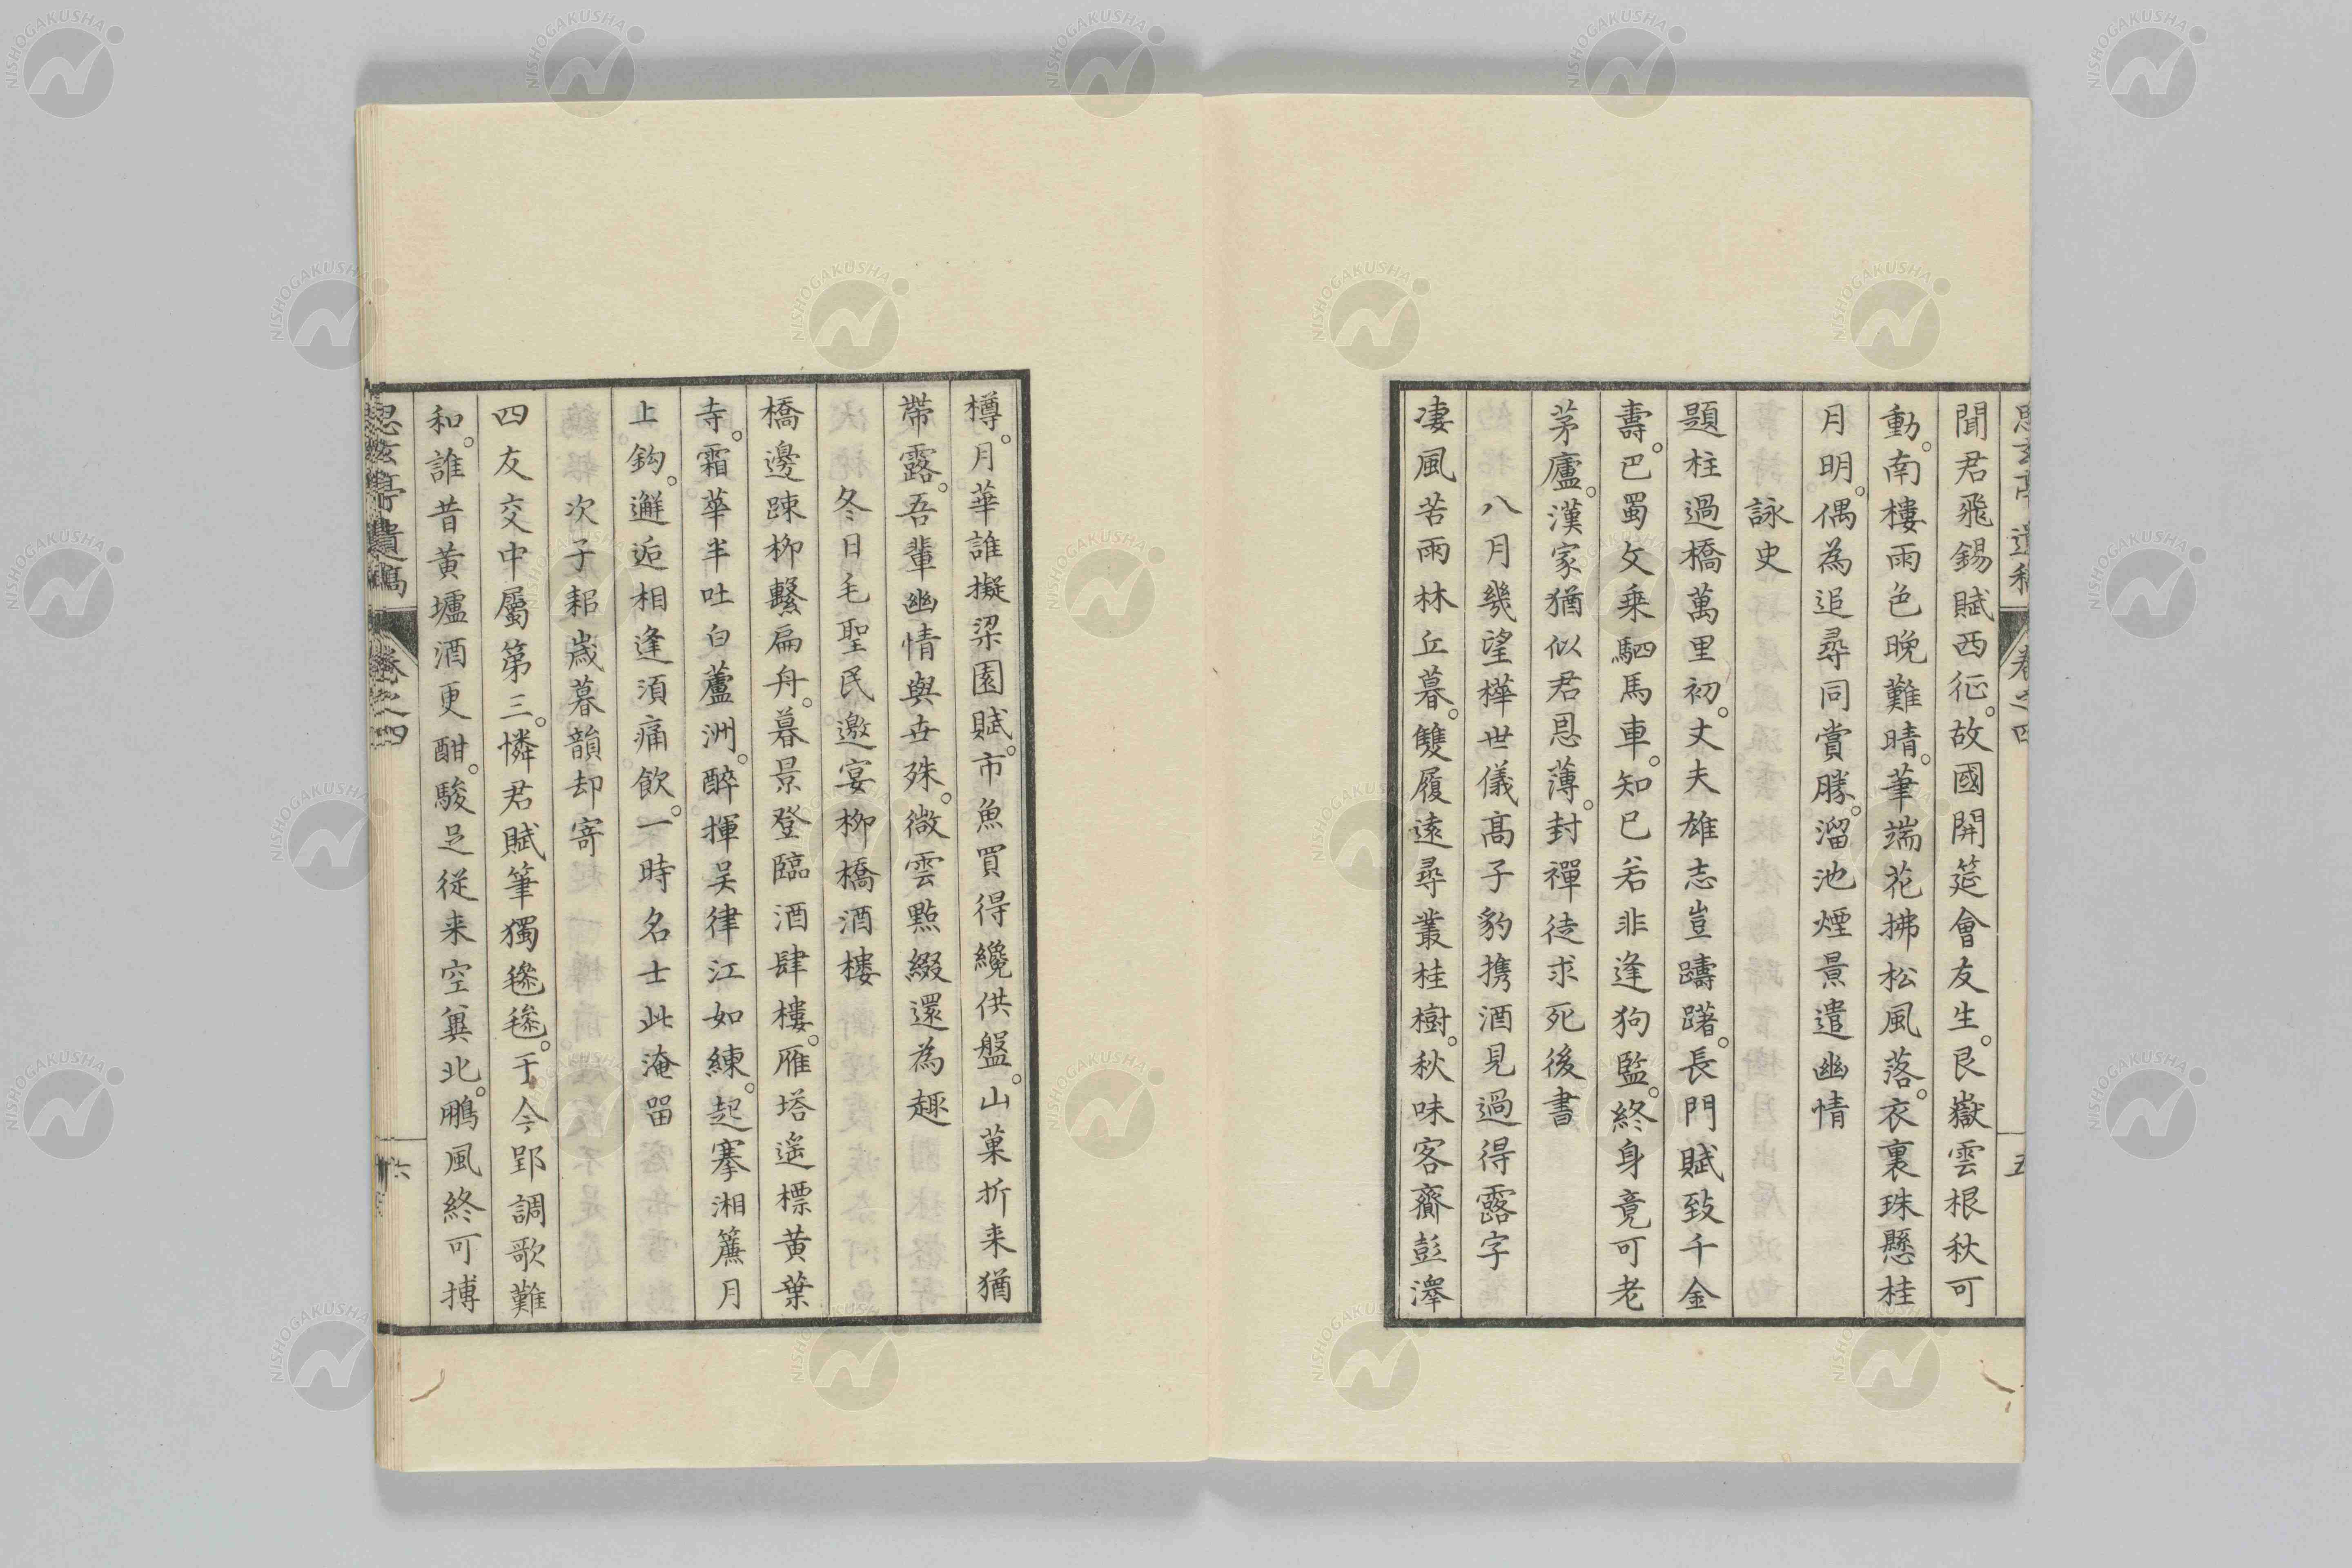 聞君飛錫賦西征。故國開筵會友生。艮嶽雲根秋可
動。南樓雨色晚難晴。筆端花拂松風落。衣裏珠懸桂
月明。偶為追尋同賞勝。溜池煙景遣幽情
詠史
題柱過橋萬里初。丈夫雄志豈躊躇。長門賦致千金
壽。巴蜀文乗駟馬車。知己若非逢狗監。終身竟可老
茅廬。漢家猶似君恩薄。封禪徒求死後書
八月幾望樺世儀髙子豹携酒見過得露字
凄風苦雨林丘暮。雙履遠尋叢桂樹。秋味客齋彭澤
樽。月華誰擬梁園賦。市魚買得纔供盤。山菓折来猶
帶露。吾輩幽情與世殊。微雲點綴還為趣
冬日毛聖民邀宴栁橋酒樓
橋邊踈栁繫扁舟。暮景登臨酒肆樓。雁塔遙標黄葉
寺。霜華半吐白蘆洲。醉揮吴律江如練。起搴湘簾月
上鈎。邂逅相逢須痛飲。一時名士此淹留
次子耜歳暮韻却寄
四友交中屬第三。憐君賦筆獨毿毿。于今郢調歌難
和。誰昔黄壚酒更酣。駿足従来空兾北。鵬風終可摶
思玄亭遺稿 卷之四 六